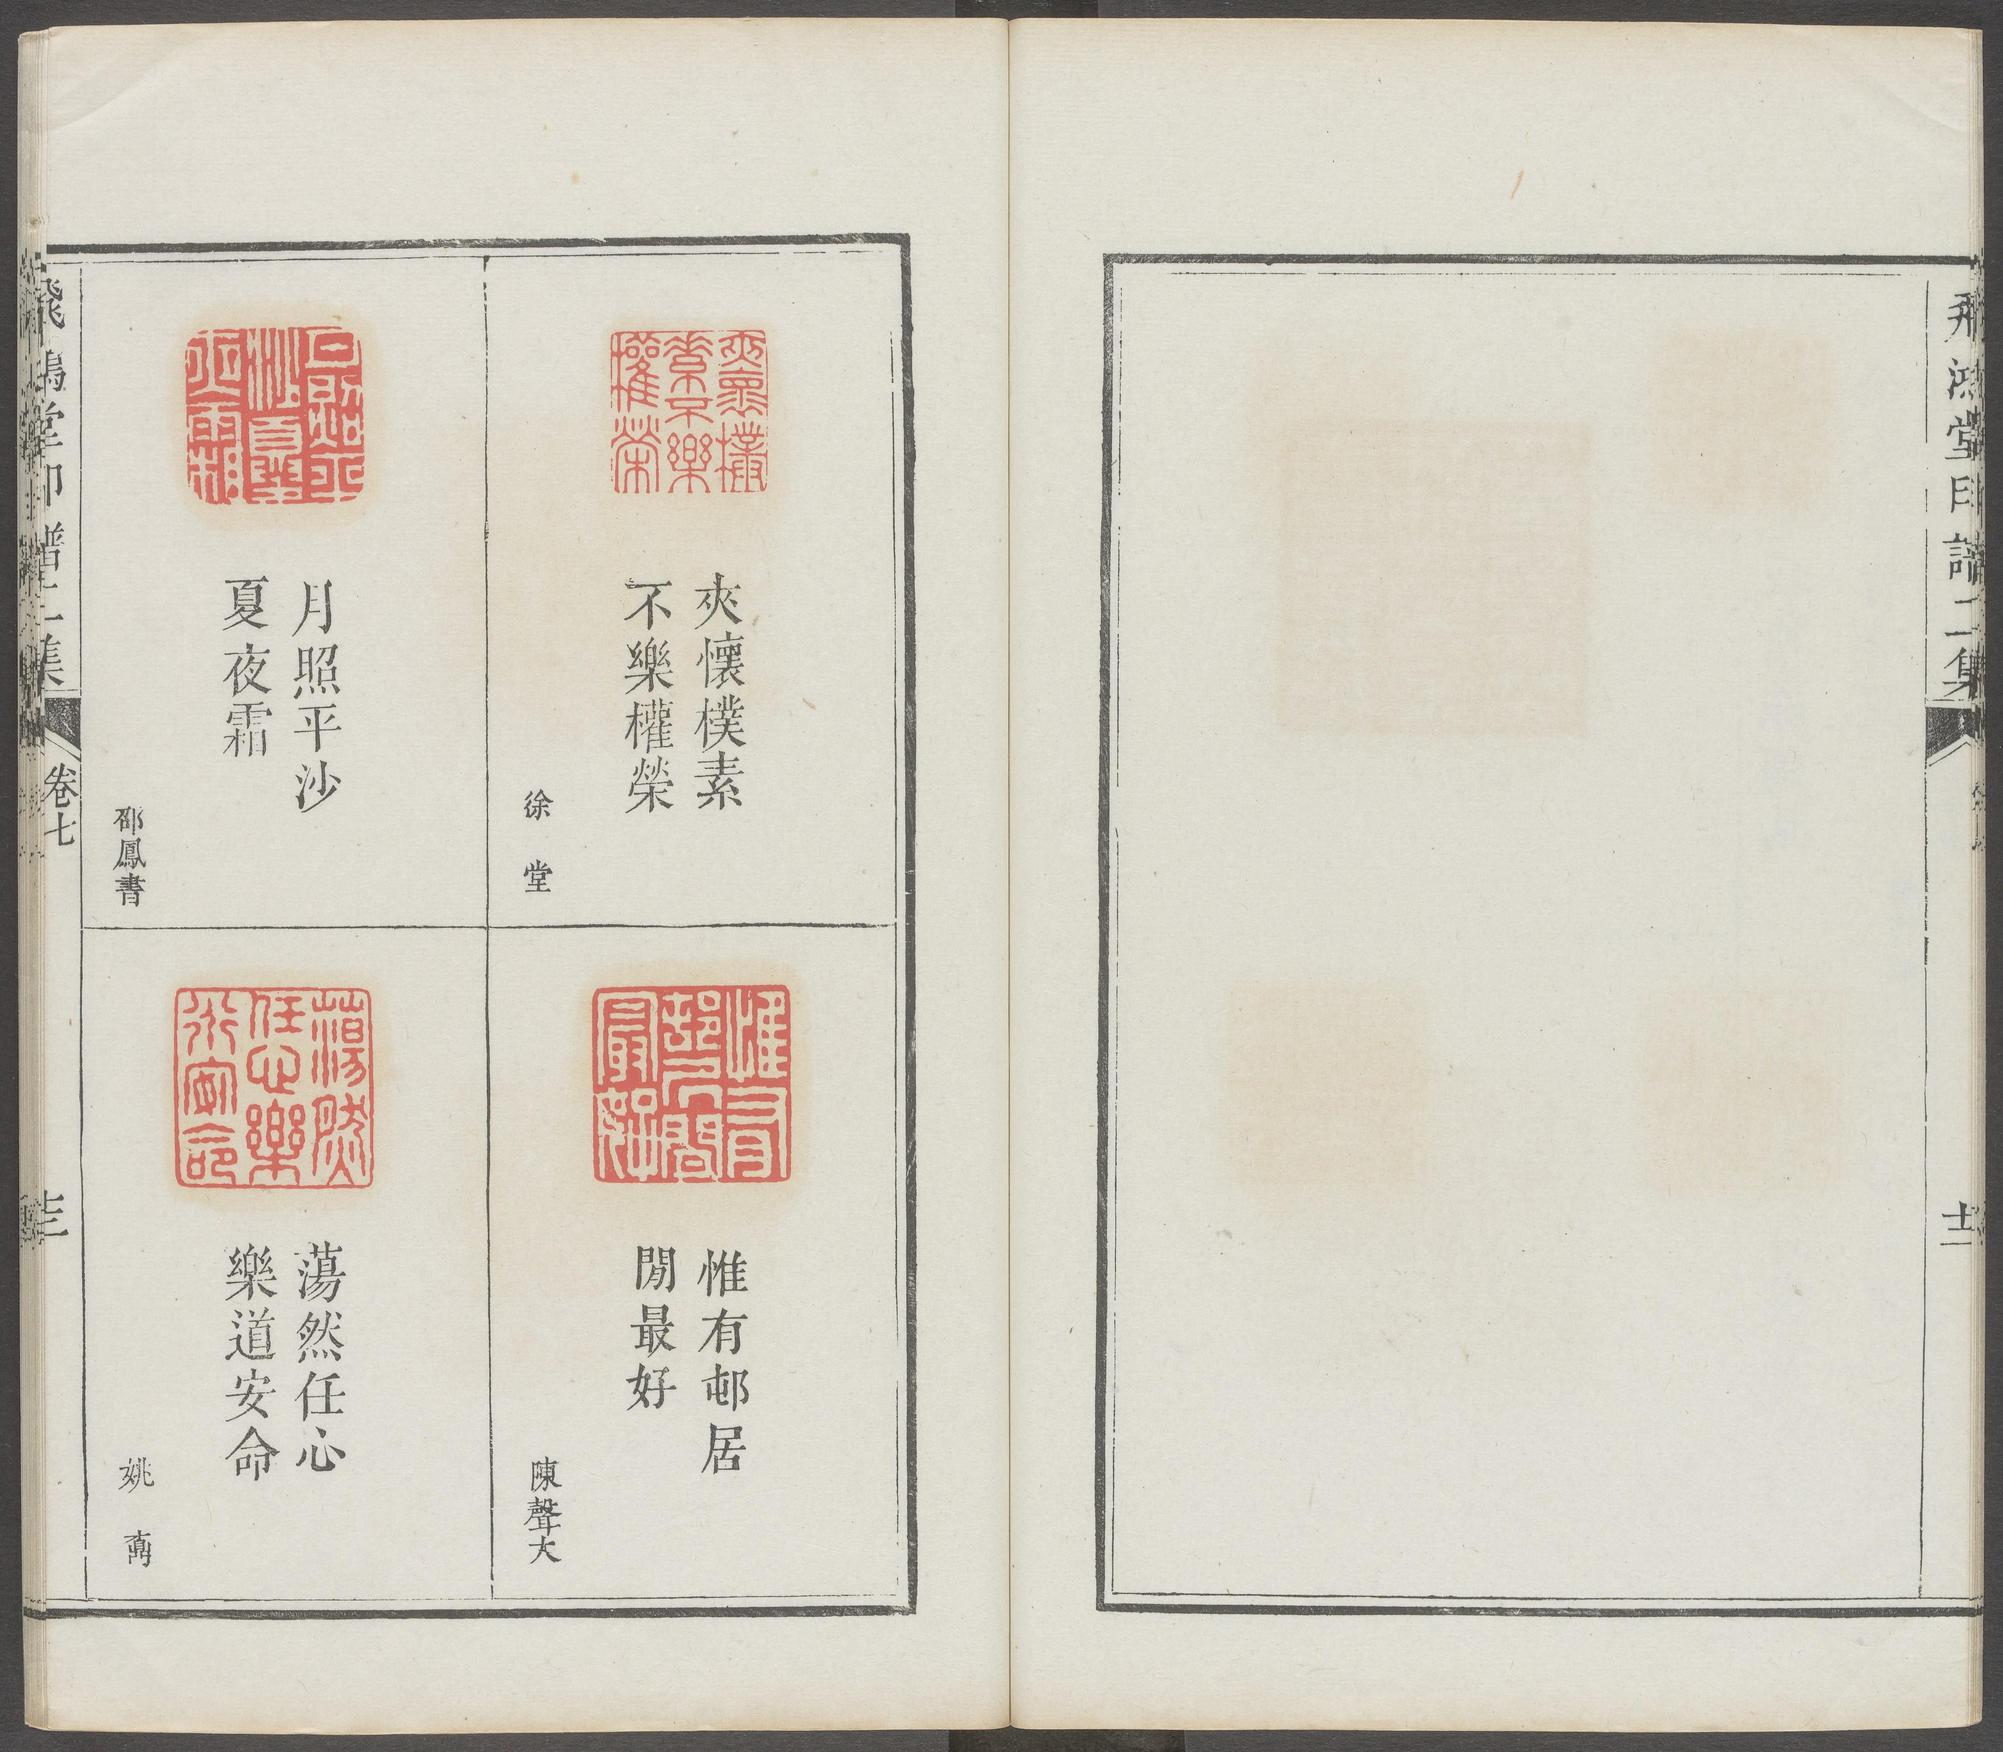 飛鴻堂印譜二集
十二
夾懷樸素
不樂權榮
徐堂
惟有邨居
閒最好
陳聲大
月照平沙
夏夜霜
邵鳳書
蕩然任心
樂道安命
姚
飛鴻堂印譜二集
卷七
十三